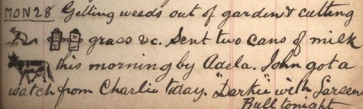 MON 28 Getting weeds out of garden & cutting
grass &c. Sent two cans of milk
this morning by Adela. John got a
watch from Charlie today. "Darkie" with Larsens
Bull tonight